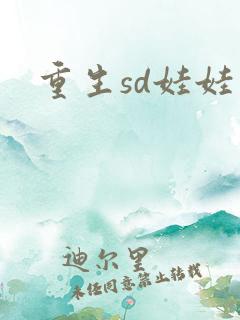 重生sd娃娃
迪尔里
未经同意禁止转载